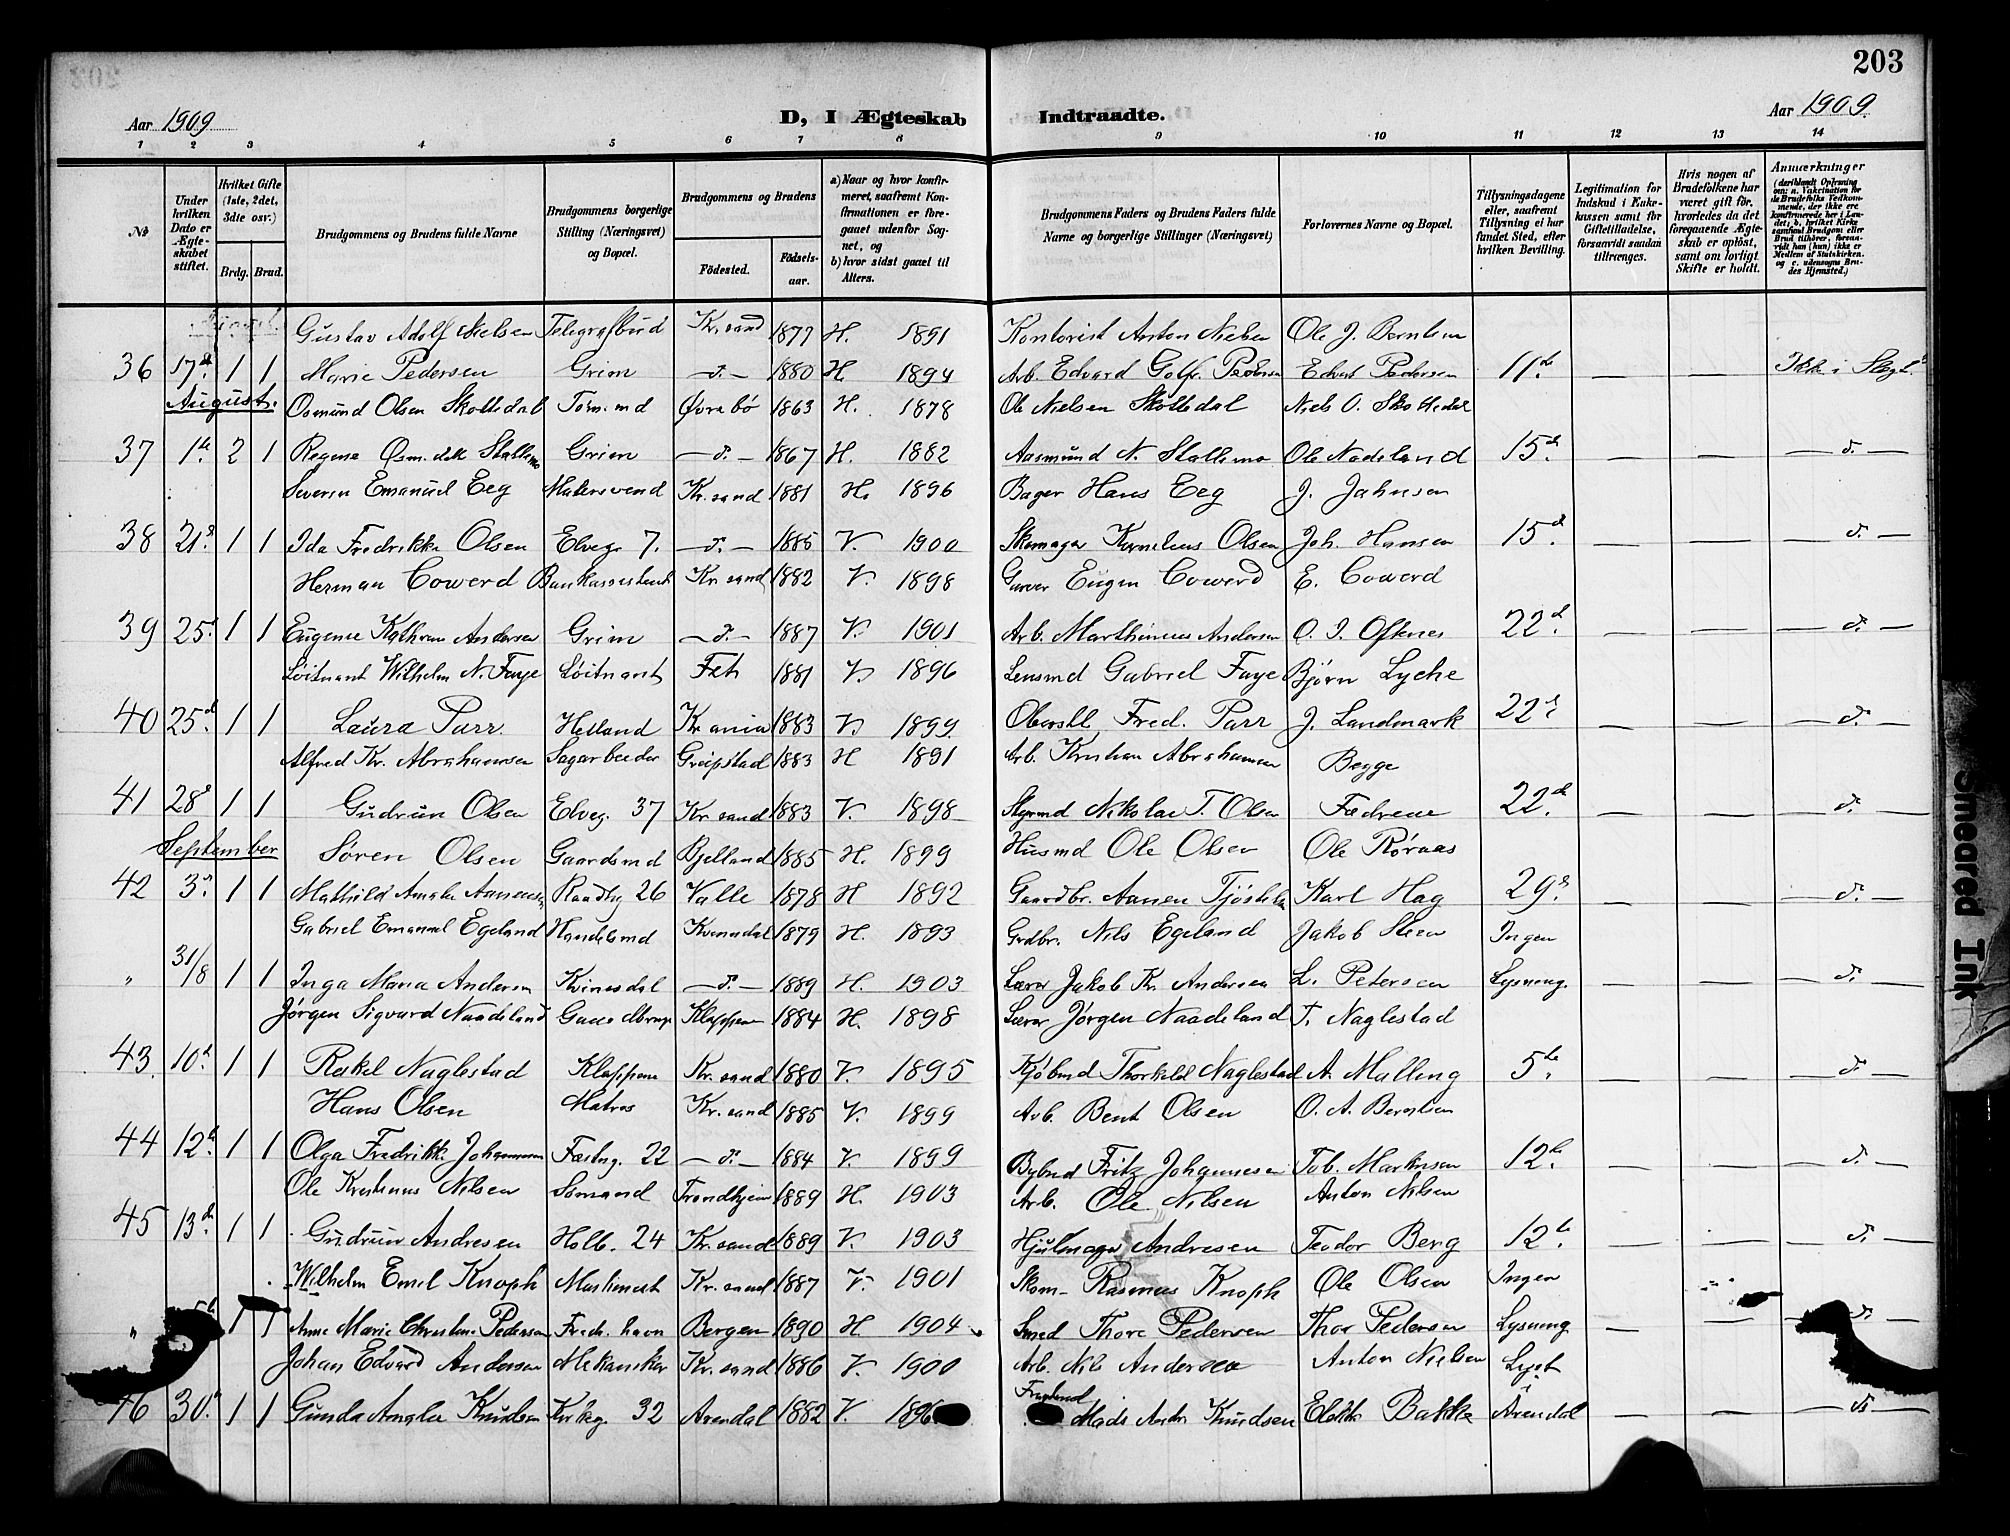 203
Aar 1909
D, I Ægteskab Indtraadte.
Aar 1909.
1 2 3 4 5 6 7 8 9 10 11 12 13 14
№
Under hvilken Dato er Ægteskabet stiftet.
Hvilket Gifte (1ste, 2det, 3die osv.)
Brdg. Brud.
Brudgommens og Brudens fulde Navne
Brudgommens borgerlige Stilling (Næringsvei) og Bopæl.
Brudgommens og Brudens
Fødested.
Fødselsaar.
a) Naar og hvor konfirmeret, saafremt Konfirmationen er foregaaet udenfor Sognet, og
b) hvor sidst gaaet til Alters.
Brudgommens Faders og Brudens Faders fulde Navne og borgerlige Stillinger (Næringsvei)
Forlovernes Navne og Bopæl.
Tillysningsdagene eller, saafremt Tillysning ei har fundet Sted, efter hvilken Bevilling.
Legitimation for Indskud i Enkekassen samt for Giftetilladelse, forsaavidt saadan tiltrænges.
Hvis nogen af Brudefolkene har været gift før, hvorledes da det foregaaende Ægteskab er opløst, samt om lovligt Skifte er holdt.
Anmærkninger
(deriblandt Oplysning om: a. Vakcination for de Brudefolks Vedkommende, der ikke ere konfirmerede her i Landet; b. hvilket Kirkesamfund Brudgom eller Brud tilhører, forsaavidt han (hun) ikke er Medlem af Statskirken. og c. udensogns Brudes Hjemsted.)
Gustav Adolf Nielsen Telegrafbud Kr.sand 1877 H. 1891 Kontorist Anton Nielsen Ole J. Berntsen
36 17d 1 1 Marie Pedersen Grim —d.— 1880 H. 1894 Arb. Edvard Pedersen Edvard Pedersen 11te — — Ikke i Slægt.
August. Osmund Olsen Skottedal Tømmd Øvrebø 1863 H. 1878 Ole Nielsen Skottedal Niels O. Skottedal
37 1te 2 1 Regene Stallemo Grim —d.— 1867 H. 1882 Aasmund N. Stallemo Ole Nodeland 15d — — —d.—
Severin Emanuel Eeg Malersvend Kr.sand 1881 H. 1896 Bager Hans Eeg J. Jahnsen
38 21d 1 1 Ida Fredrikke Olsen Elveg. 7. —d.— 1885 V. 1900 Skomager Kornelius Olsen Joh. Hansen 15d — — —d.—
Herman Cowerd Bankassistent Kr.sand 1882 V. 1898 Garver Eugen Cowerd E. Cowerd
39 25d 1 1 Eugenie Kathrine Andersen Grim —d.— 1887 V. 1901 Arb. Marthinius Andersen O. I. Oftenes 22d. — — —d.—
Løitnant Wilhelm N. Faye Løitnant Fet 1881 V. 1896 Lensmd Gabriel Faye Bjørn Lyche
40 25d 1 1 Laura Parr Helland Kr.ania 1883 V. 1899 Oberstl. Fred. Parr J. Landmark 22d — — —d.—
Alfred Kr. Abrahamsen Sagarbeider Greipstad 1883 H 1891 Arb. Kristian Abrahamsen Begge
41 28d 1 1 Gudrun Olsen Elveg. 37 Kr.sand 1883 V. 1898 Styrmd Nikolai T. Olsen Fædrene 22d. — — —d.—
September Søren Olsen Gaardsmd Bjelland 1885 H. 1899 Husmd Ole Olsen Ole Røraas
42 3d 1 1 Mathild Amalie Aanensen 26 Valle 1878 H 1892 Gaardbr. Aanen Karl Hag 29d — — —d.—
Gabriel Emanuel Egeland Handelsmd Kvinesdal 1879 H. 1893 Grdbr. Nils Egeland Jakob Steen Ingen
„ 31/8 1 1 Inga Maria Andersen Kvinesdal —d.— 1889 H. 1903 Lærer Jakob Kr. Andersen L. Petersen Lysning. — — —d.—
Jørgen Sigvard Naadeland Klappene 1884 H. 1898 Lærer Jørgen Naadeland T. Naglestad
43. 10d 1 1 Reskel Naglestad Klappene Kr.sand 1880 V. 1895 Kjøbmd Thorkild Naglestad A. Malling 5te — — —d.—
Hans Olsen Matros Kr.sand 1885 V. 1899 Arb. Bent Olsen O. A. Berntsen
44 12te 1 1 Olga Fredrikke Johannessen Fæstng. 22 —d.— 1884 V. 1899 Bybud Fritz Johannesen Tob. Markusen 12te. — — —d.—
Ole Kristinus Nilsen Sømand Trondhjem 1889 H. 1903 Arb. Ole Nilsen Anton Nilsen
45 13de 1 1 Gudrun Andresen Holb. 24 Kr.sand 1889 V. 1903 Hjulmager Andresen Teodor Berg 12te — — —d.—
Wilhelm Emil Knoph Maskinist Kr.sand 1887 V. 1901 Skom- Rasmus Knoph Ole Olsen Ingen
„ 1 1 Anne Marie Christine Pedersen Fredr.havn Bergen 1890 H 1904 Smed Thore Pedersen Thor Pedersen Lysning — — d.
Johan Edvard Andersen Mekaniker Kr.sand 1886 V. 1900 Arb. Nils Andersen Anton Nielsen Lyst
46 30te 1 1 Gunda Amalie Knudsen Kirkeg. 32 Arendal 1882 V. 1896 Fragtmd Mads Knudsen Bakke i Arendal — — —d.
Smeared Ink